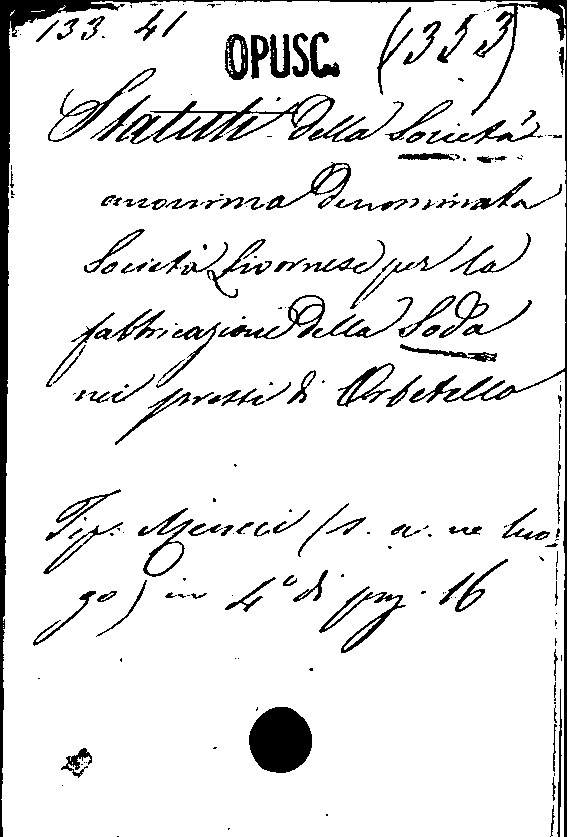 133. 41
OPUSC.
(1353)
Statuti della Società
anonima denominata
Società Livornese per la
fabbricazione della Soda
nei pressi di Orbetello
Tip. Meucci (s. a. ne luo-
go) in 4° di pag. 16